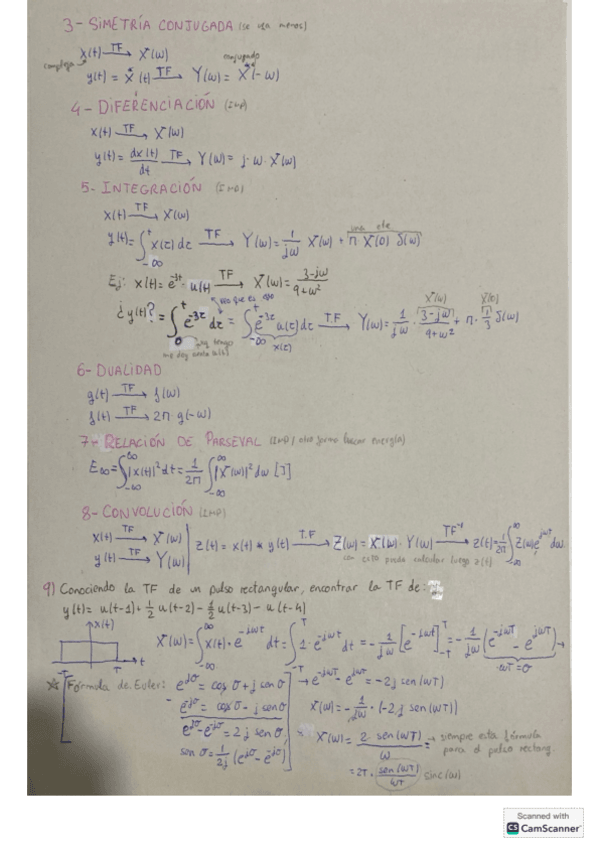 3- SIMETRÍA CONJUGADA (se usa menos)
x(t) —TF→ X(ω)
compleja conjugado
y(t) = x*(t) —TF→ Y(ω) = X*(-ω)
4- DIFERENCIACIÓN (IMP)
x(t) —TF→ X(ω)
y(t) = dx(t)/dt —TF→ Y(ω) = j·ω·X(ω)
5- INTEGRACIÓN (IMP)
x(t) —TF→ X(ω)
y(t) = ∫_{-∞}^{t} x(τ)dτ —TF→ Y(ω) = 1/jω X(ω) + π·X(0) δ(ω) una cte
Ej: x(t) = e^{-3t}·u(t) —TF→ X(ω) = 3-jω/9+ω²
¿y(t)? = ∫_0^t e^{-3τ} dτ = ∫_{-∞}^t e^{-3τ} u(τ)dτ —T.F→ Y(ω) = 1/jω · 3-jω/9+ω² + π·1/3 δ(ω)
x(τ)
6- DUALIDAD
g(t) —TF→ f(ω)
f(t) —TF→ 2π·g(-ω)
7- RELACIÓN DE PARSEVAL (IMP/ otra forma buscar energía)
E∞ = ∫_{-∞}^{∞} |x(t)|² dt = 1/2π ∫_{-∞}^{∞} |X(ω)|² dω [J]
8- CONVOLUCIÓN (IMP)
x(t) —TF→ X(ω)
y(t) —TF→ Y(ω)
z(t) = x(t) * y(t) —T.F→ Z(ω) = X(ω)·Y(ω) —TF⁻¹→ z(t) = 1/2π ∫_{-∞}^{∞} Z(ω)e^{jωt} dω
con esto puedo calcular luego z(t)
9) Conociendo la TF de un pulso rectangular, encontrar la TF de:
y(t) = u(t-1) + 1/2 u(t-2) - 1/2 u(t-3) - u(t-4)
x(t)
-T T t
X(ω) = ∫_{-∞}^{∞} x(t)·e^{-jωt} dt = ∫_{-T}^{T} 1·e^{-jωt} dt = -1/jω [e^{-jωt}]_{-T}^{T} = -1/jω (e^{-jωT} - e^{jωT}) →
ωT = σ
☆ Fórmula de Euler:
e^{jσ} = cos σ + j sen σ
e^{-jσ} = cos σ - j sen σ
e^{jσ} - e^{-jσ} = 2j sen σ
sen σ = 1/2j (e^{jσ} - e^{-jσ})
→ e^{-jωT} - e^{jωT} = -2j sen(ωT)
X(ω) = -1/jω · (-2j sen(ωT))
X(ω) = 2 sen(ωT)/ω → siempre esta fórmula para el pulso rectang.
= 2T · sen(ωT)/ωT sinc(ω)
Scanned with
CS CamScanner